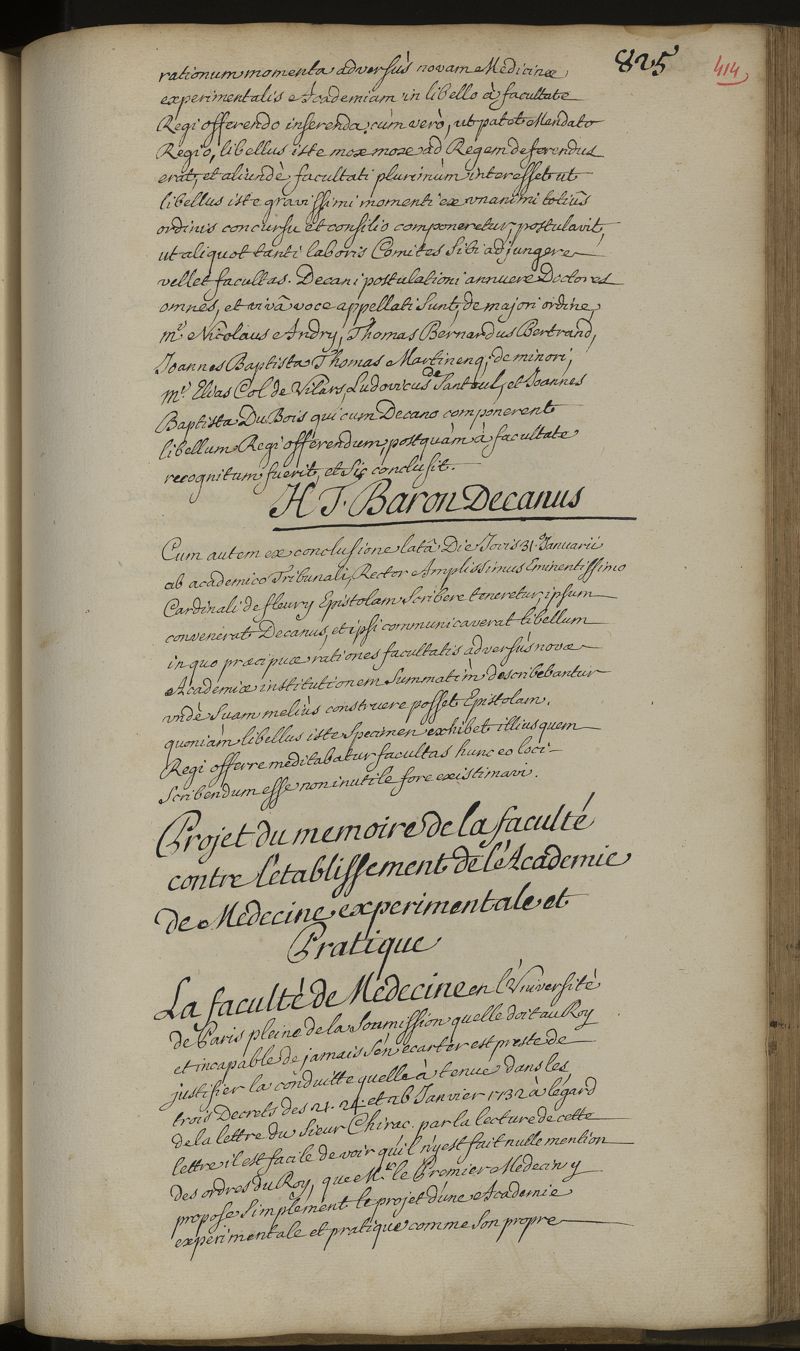 825
414
rationum momenta adversùs novam Medicinæ
experimentalis Academiam in libello à facultate
Regi offerendo inserenda; cum verò, ut patet Mandato
Regio, libellus iste mox mox ad Regem deferendus
erat, et aliundè facultati plurimùm interesset ut
libellus iste gravissimi momenti ex unanimi totius
ordinis concursu et consilio componeretur, postulavit,
ut aliquot tanti laboris Comites sibi adjungere
vellet facultas. Decani postulationi annuere Doctores
omnes, et vivâ voce appellati sunt, de majori ordine,
mri Nicolaus Andry, Thomas Bernardus Bertrand,
Joannes Baptista Thomas Martinenq; de minori,
mri Elias Col de Vilars, Ludovicus de Santeul, et Joannes
Baptista Du Bois qui cum Decano componerent
libellum Regi offerendum postquàm à facultate
recognitum fuerit, et sic conclusit.
H T. Baron Decanus
Cum autem ex conclusione latâ Die Jovis 31. Januarii
ab academico Tribunali, Rector Amplissimus Eminentissimo
Cardinali de fleury Epistolam scribere teneretur, ipsum
convenerat Decanus, et ipsi communicaverat libellum
in quo præcipuæ rationes facultatis adversùs novæ
Academiæ institutionem summatìm describebantur
undè suam meliùs construere posset Epistolam.
quoniàm libellus iste specimen exhibet illius quem
Regi offerre meditabatur facultas hunc eo loci
scribendum esse non inutile fore existimavi.
Projet du memoire de la faculté
contre l'établissement de l'Academie
de Medecine experimentale et
Pratique
La faculté de Medecine en l'Université
de Paris pleine de la soumission quelle doit au Roy
et incapable de jamais s'en ecarter est preste de
justifier la conduitte quelle à tenue dans les
trois Decrets des 21. 24. et 26 Janvier 1732 à légard
de la lettre du sieur Chirac. par la lecture de cette
lettre il est facile de voir qu'il n'y est fait nulle mention
des ordres du Roy, que Mr. le Premier Medecin y
propose simplement le projet d'une Academie
experimentale et pratique comme son propre